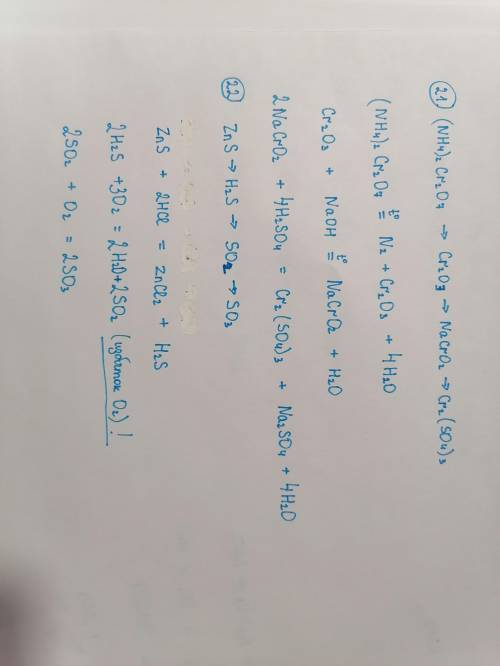 21 (NH4)2Cr2O7 → Cr2O3 → NaCrO2 → Cr2(SO4)3
(NH4)2Cr2O7 =t° N2 + Cr2O3 + 4H2O
Cr2O3 + NaOH =t° NaCrO2 + H2O
2NaCrO2 + 4H2SO4 = Cr2(SO4)3 + Na2SO4 + 4H2O
22 ZnS → H2S → SO2 → SO3
ZnS + 2HCl = ZnCl2 + H2S
2H2S + 3O2 = 2H2O + 2SO2 (избыток O2)!
2SO2 + O2 = 2SO3